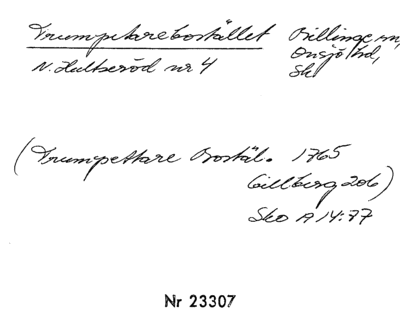 Trumpetarebostället Billinge sn,
N. Hultseröd nr 4 Onsjö hd,
Sk
(Trumpettare Bostäl. 1765
Gillberg 206)
Sko A 14:77
Nr 23307